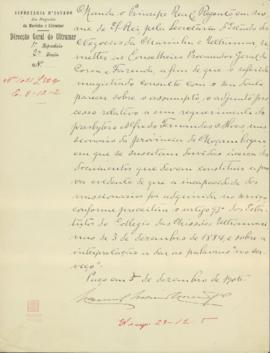 SECRETARIA D'ESTADO
dos Negocios
da Marinha e Ultramar
Direcção Geral do Ultramar
1ª Repartição
2ª Secção
Nº
Manda o Principe Real, Regente em no-
me de El-Rei pela Secretaria d'Estado dos
Negocios da Marinha e Ultramar, re-
metter ao Conselheiro Procurador Geral da
Corôa e Fazenda, a fim de que o referido
magistrado consulte com o seu douto
parecer sobre o assumpto, o adjunto pro-
cesso relativo a um requerimento do
presbytero Alfredo Fernandes
sionario da provincia de Moçambique
em que se suscitam duvidas ácerca dos
documentos que devem constituir a pro-
va evidente de que a incapacidade dos
missionarios foi adquirida no serviço
conforme preceitua o artigo dos Esta-
tutos do Collegio das Missões Ultramari-
nas de 3 de dezembro de 1884, e sobre a
interpretação a dar ás palavras "no ser-
viço".
Paço, em de dezembro de 1905
Manuel